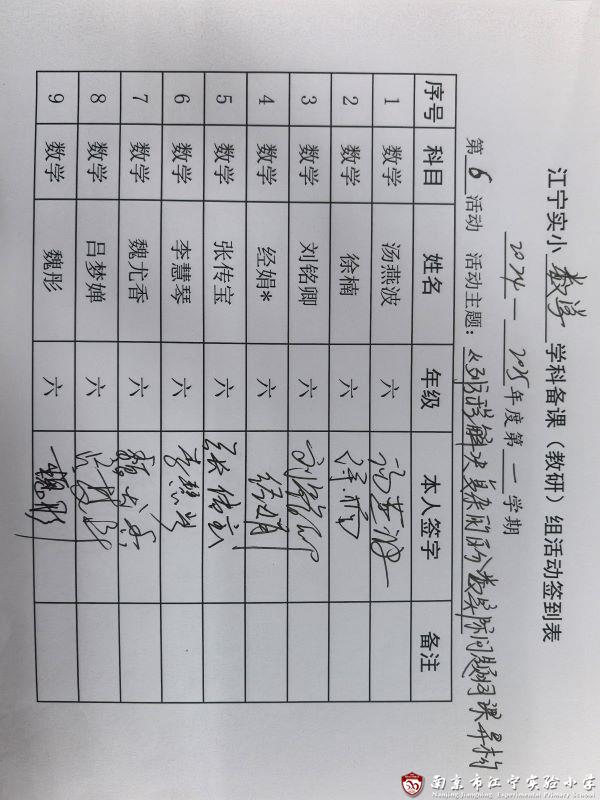 江宁实小 数学 学科备课（教研）组活动签到表
2024—2025年度第一学期
第6活动 活动主题：《列方程解决复杂的百分数实际问题》同课异构
序号 科目 姓名 年级 本人签字 备注
1 数学 汤燕波 六 汤燕波
2 数学 徐楠 六 徐楠
3 数学 刘铭卿 六 刘铭卿
4 数学 经娟* 六 经娟
5 数学 张传宝 六 张传宝
6 数学 李慧琴 六 李慧琴
7 数学 魏尤香 六 魏尤香
8 数学 吕梦婵 六 吕梦婵
9 数学 魏彤 六 魏彤
南京市江宁实验小学